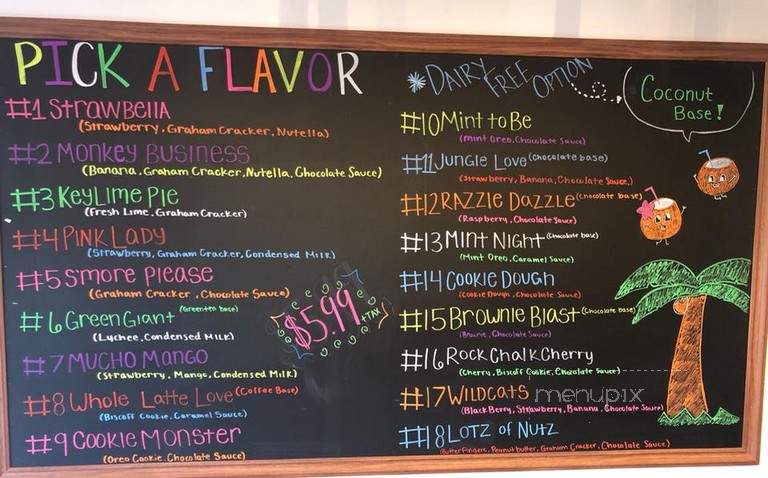 PICK A FLAVOR
#1 Strawbella
(Strawberry, Graham Cracker, Nutella)
#2 Monkey Business
(Banana, Graham Cracker, Nutella, Chocolate Sauce)
#3 Key Lime Pie
(Fresh Lime, Graham Cracker)
#4 Pink Lady
(Strawberry, Graham Cracker, Condensed Milk)
#5 S'more Please
(Graham Cracker, Chocolate Sauce)
#6 Green Giant (Green tea base)
(Lychee, Condensed Milk)
#7 Mucho Mango
(Strawberry, Mango, Condensed Milk)
#8 Whole Latte Love (Coffee Base)
(Biscoff Cookie, Caramel Sauce)
#9 Cookie Monster
(Oreo Cookie, Chocolate Sauce)
$5.99
+TAX
*DAIRY FREE OPTION
Coconut
Base!
#10 Mint to Be
(Mint Oreo, Chocolate Sauce)
#11 Jungle Love (Chocolate base)
(Strawberry, Banana, Chocolate Sauce)
#12 Razzle Dazzle (Chocolate base)
(Raspberry, Chocolate Sauce)
#13 Mint Night (Chocolate base)
(Mint Oreo, Caramel Sauce)
#14 Cookie Dough
(Cookie Dough, Chocolate Sauce)
#15 Brownie Blast (Chocolate base)
(Brownie, Chocolate Sauce)
#16 Rock Chalk Cherry
(Cherry, Biscoff Cookie, Chocolate Sauce)
#17 Wildcats
(BlackBerry, Strawberry, Banana, Chocolate Sauce)
#18 Lotz of Nutz
(Butterfingers, Peanut butter, Graham Cracker, Chocolate Sauce)
menupix